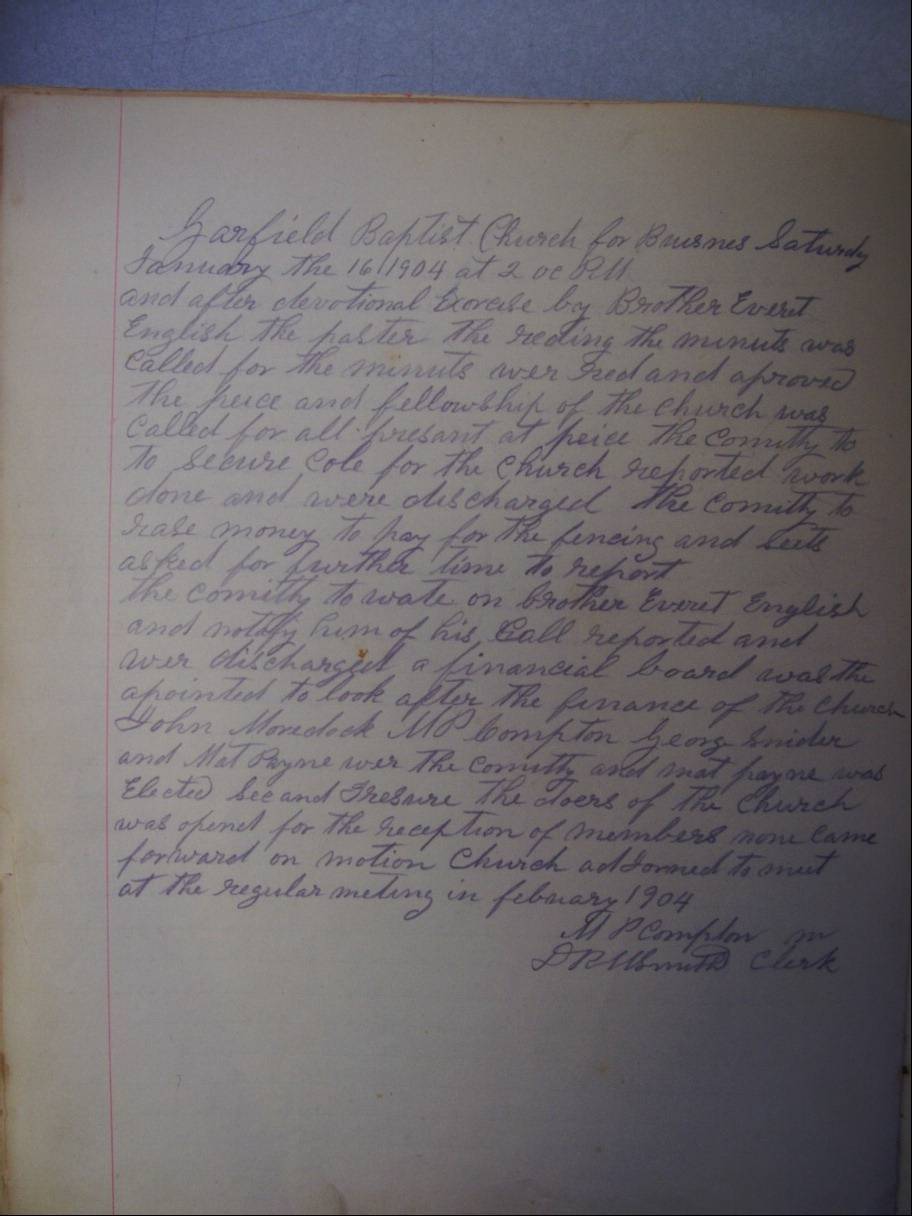 Garfield Baptist Church for Buisnes Saturdy
January the 16 1904 at 2 oc P.M.
and after devotional Exorcise by Brother Everet
English the paster the reeding the minuts was
Called for the minuts wer red and aproved
the peice and fellowship of the church was
Called for all presant at peice the Comitty to
to secure Cole for the Church reported work
done and were discharged the Comitty to
rase money to pay for the fencing and seets
asked for further time to report
the comitty to wate on brother Everet English
and notify him of his Call reported and
wer discharged a financial board was the
apointed to look after the finance of the Church
John Moredock M P Compton Georg Snider
and Mat Payne wer the comitty and mat payne was
Elected Sec and Tresure the doers of the Church
was opend for the reception of members none Came
forward on motion Church adJorned to meet
at the regular meting in february 1904
M P Compton m
Clerk